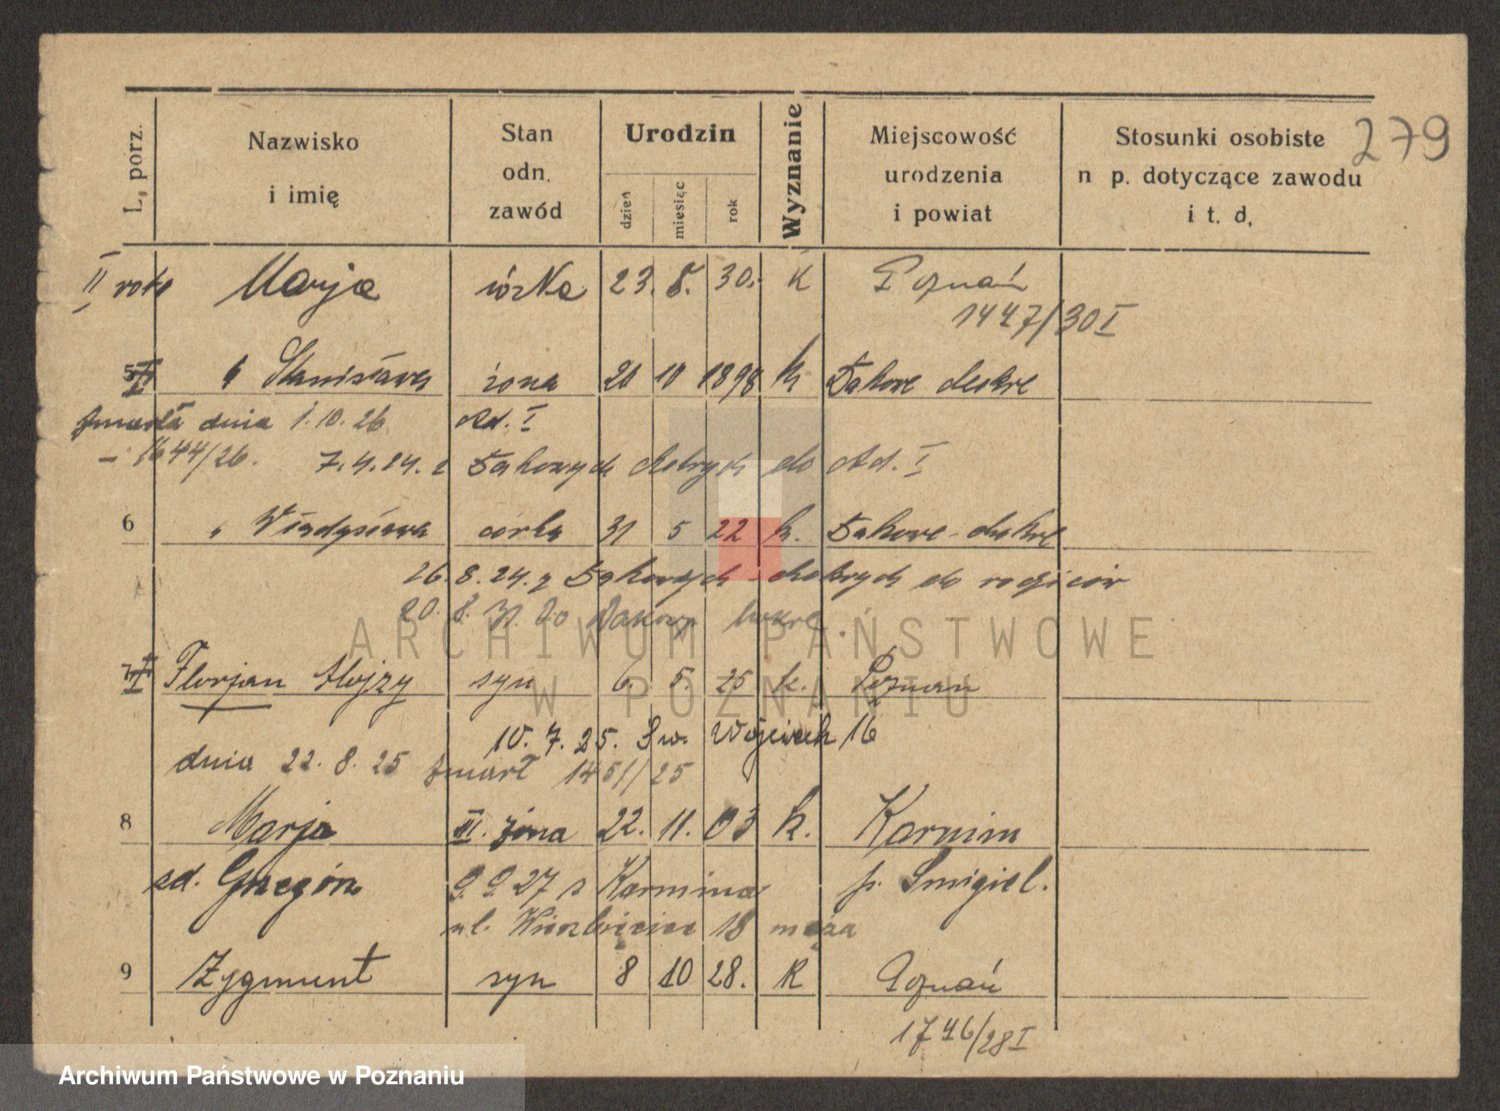 279
L, porz.
Nazwisko
i imię
Stan
odn.
zawód
Urodzin
dzień
miesiąc
rok
Wyznanie
Miejscowość
urodzenia
i powiat
Stosunki osobiste
n p. dotyczące zawodu
i t. d,
II Marja córka 23. 8. 30. k Poznań
1447/30 I
5 Stanisława żona 20 10 1898 k
zmarła dnia 1.10.26 Od. I
- 1644/26. 7.4.24. z do Od. I
6 " Władysława córka 31 5 22 k.
26.8.24. z do rodziców
20. 8. 31. Do
7 Florjan Alojzy syn 6 5. 25 k. Poznań
10. 7. 25. Św. Wojciech 16
dnia 22. 8. 25 zmarł 1451/25
8 Marja III. żona 22. 11. 03 k. Karmin
zd. Grzegórz 9.9.27 z Karmina p. Śmigiel.
ul. Wierzbięcice 18 męża
9 Zygmunt syn 8 10 28. k Poznań
1746/28 I
ARCHIWUM PAŃSTWOWE
W POZNANIU
Archiwum Państwowe w Poznaniu